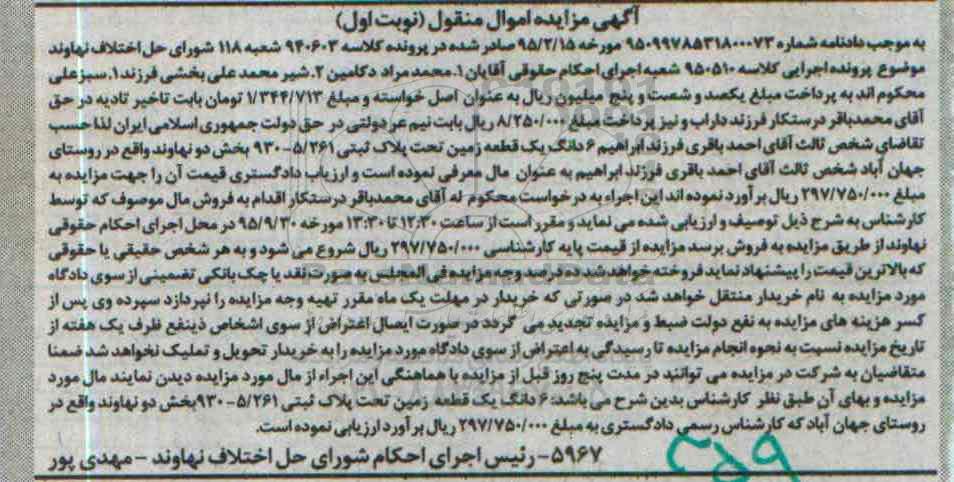 آگهی مزایده اموال منقول (نوبت اول)
به موجب دادنامه شماره ۹۵۰۹۹۷۸۵۳۱۸۰۰۰۷۳ مورخه ۹۵/۲/۱۵ صادر شده در پرونده کلاسه ۹۴۰۶۰۳ شعبه ۱۱۸ شورای حل اختلاف نهاوند
موضوع پرونده اجرایی کلاسه ۹۵۰۵۱۰ شعبه اجرای احکام حقوقی آقایان ۱.محمد مراد دکامین ۲.شیر محمد علی بخشی فرزند ۱.سبزعلی
محکوم اند به پرداخت مبلغ یکصد و شصت و پنج میلیون ریال به عنوان اصل خواسته و مبلغ ۱/۳۴۴/۷۱۳ تومان بابت تاخیر تادیه در حق
آقای محمدباقر درستکار فرزند داراب و نیز پرداخت مبلغ ۸/۲۵۰/۰۰۰ ریال بابت نیم عر دولتی در حق دولت جمهوری اسلامی ایران لذا حسب
تقاضای شخص ثالث آقای احمد باقری فرزند ابراهیم ۶ دانگ یک قطعه زمین تحت پلاک ثبتی ۵/۲۶۱-۹۳۰ بخش دو نهاوند واقع در روستای
جهان آباد شخص ثالث آقای احمد باقری فرزند ابراهیم به عنوان مال معرفی نموده است و ارزیاب دادگستری قیمت آن را جهت مزایده به
مبلغ ۲۹۷/۷۵۰/۰۰۰ ریال بر آورد نموده اند این اجراء به درخواست محکوم له آقای محمدباقر درستکار اقدام به فروش مال موصوف که توسط
کارشناس به شرح ذیل توصیف و ارزیابی شده می نماید و مقرر است از ساعت ۱۲:۳۰ تا ۱۳:۳۰ مورخه ۹۵/۹/۳۰ در محل اجرای احکام حقوقی
نهاوند از طریق مزایده به فروش برسد مزایده از قیمت پایه کارشناسی ۲۹۷/۷۵۰/۰۰۰ ریال شروع می شود و به هر شخص حقیقی یا حقوقی
که بالاترین قیمت را پیشنهاد نماید فروخته خواهد شد ده درصد وجه مزایده فی المجلس به صورت نقد یا چک بانکی تضمینی از سوی دادگاه
مورد مزایده به نام خریدار منتقل خواهد شد در صورتی که خریدار در مهلت یک ماه مقرر تهیه وجه مزایده را نپردازد سپرده وی پس از
کسر هزینه های مزایده به نفع دولت ضبط و مزایده تجدید می گردد در صورت ایصال اعتراض از سوی اشخاص ذینفع ظرف یک هفته از
تاریخ مزایده نسبت به نحوه انجام مزایده تا رسیدگی به اعتراض از سوی دادگاه مورد مزایده را به خریدار تحویل و تملیک نخواهد شد ضمنا
متقاضیان به شرکت در مزایده می توانند در مدت پنج روز قبل از مزایده با هماهنگی این اجراء از مال مورد مزایده دیدن نمایند مال مورد
مزایده و بهای آن طبق نظر کارشناس بدین شرح می باشد: ۶ دانگ یک قطعه زمین تحت پلاک ثبتی ۵/۲۶۱-۹۳۰ بخش دو نهاوند واقع در
روستای جهان آباد که کارشناس رسمی دادگستری به مبلغ ۲۹۷/۷۵۰/۰۰۰ ریال بر آورد ارزیابی نموده است.
۵۹۶۷- رئیس اجرای احکام شورای حل اختلاف نهاوند - مهدی پور